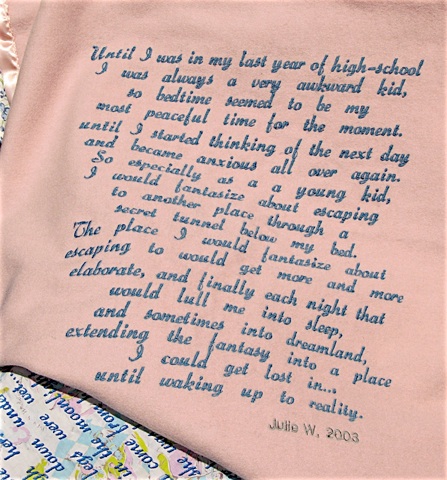 Until I was in my last year of high-school
I was always a very awkward kid,
so bedtime seemed to be my
most peaceful time for the moment.
until I started thinking of the next day
and became anxious all over again.
So especially as a a young kid,
I would fantasize about escaping
to another place through a
secret tunnel below my bed.
The place I would fantasize about
escaping to would get more and more
elaborate, and finally each night that
would lull me into sleep,
and sometimes into dreamland,
extending the fantasy into a place
I could get lost in...
until waking up to reality.
Julie W. 2003
were
in the moon!
legs
down
under
her
she
come